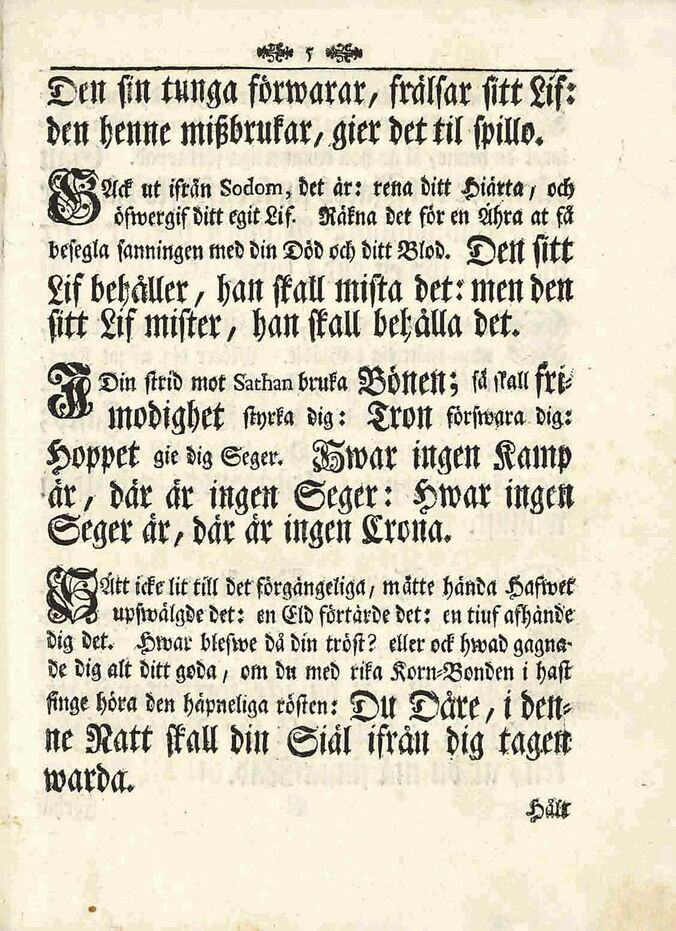 5
Den sin tunga förwarar, frälsar sitt Lif:
den henne mißbrukar, gier det til spillo.
GAck ut ifrån Sodom, det är: rena ditt Hiärta, och
öfwergif ditt egit Lif. Räkna det för en Ähra at få
besegla sanningen med din Död och ditt Blod. Den sitt
Lif behåller, han skall mista det: men den
sitt Lif mister, han skall behålla det.
I Din strid mot Sathan bruka Bönen; så skall fri-
modighet styrka dig: Tron förswara dig:
Hoppet gie dig Seger. Hwar ingen Kamp
är, där är ingen Seger: Hwar ingen
Seger är, där är ingen Crona.
SÄtt icke lit till det förgängeliga, mätte hända Hafwet
upswälgde det: en Eld förtärde det: en tiuf afhände
dig det. Hwar blefwe då din tröst? eller ock hwad gagna-
de dig alt ditt goda, om du med rika Korn-Bonden i hast
finge höra den häpneliga rösten: Du Dåre, i den-
ne Natt skall din Siäl ifrån dig tagen
warda.
Hält